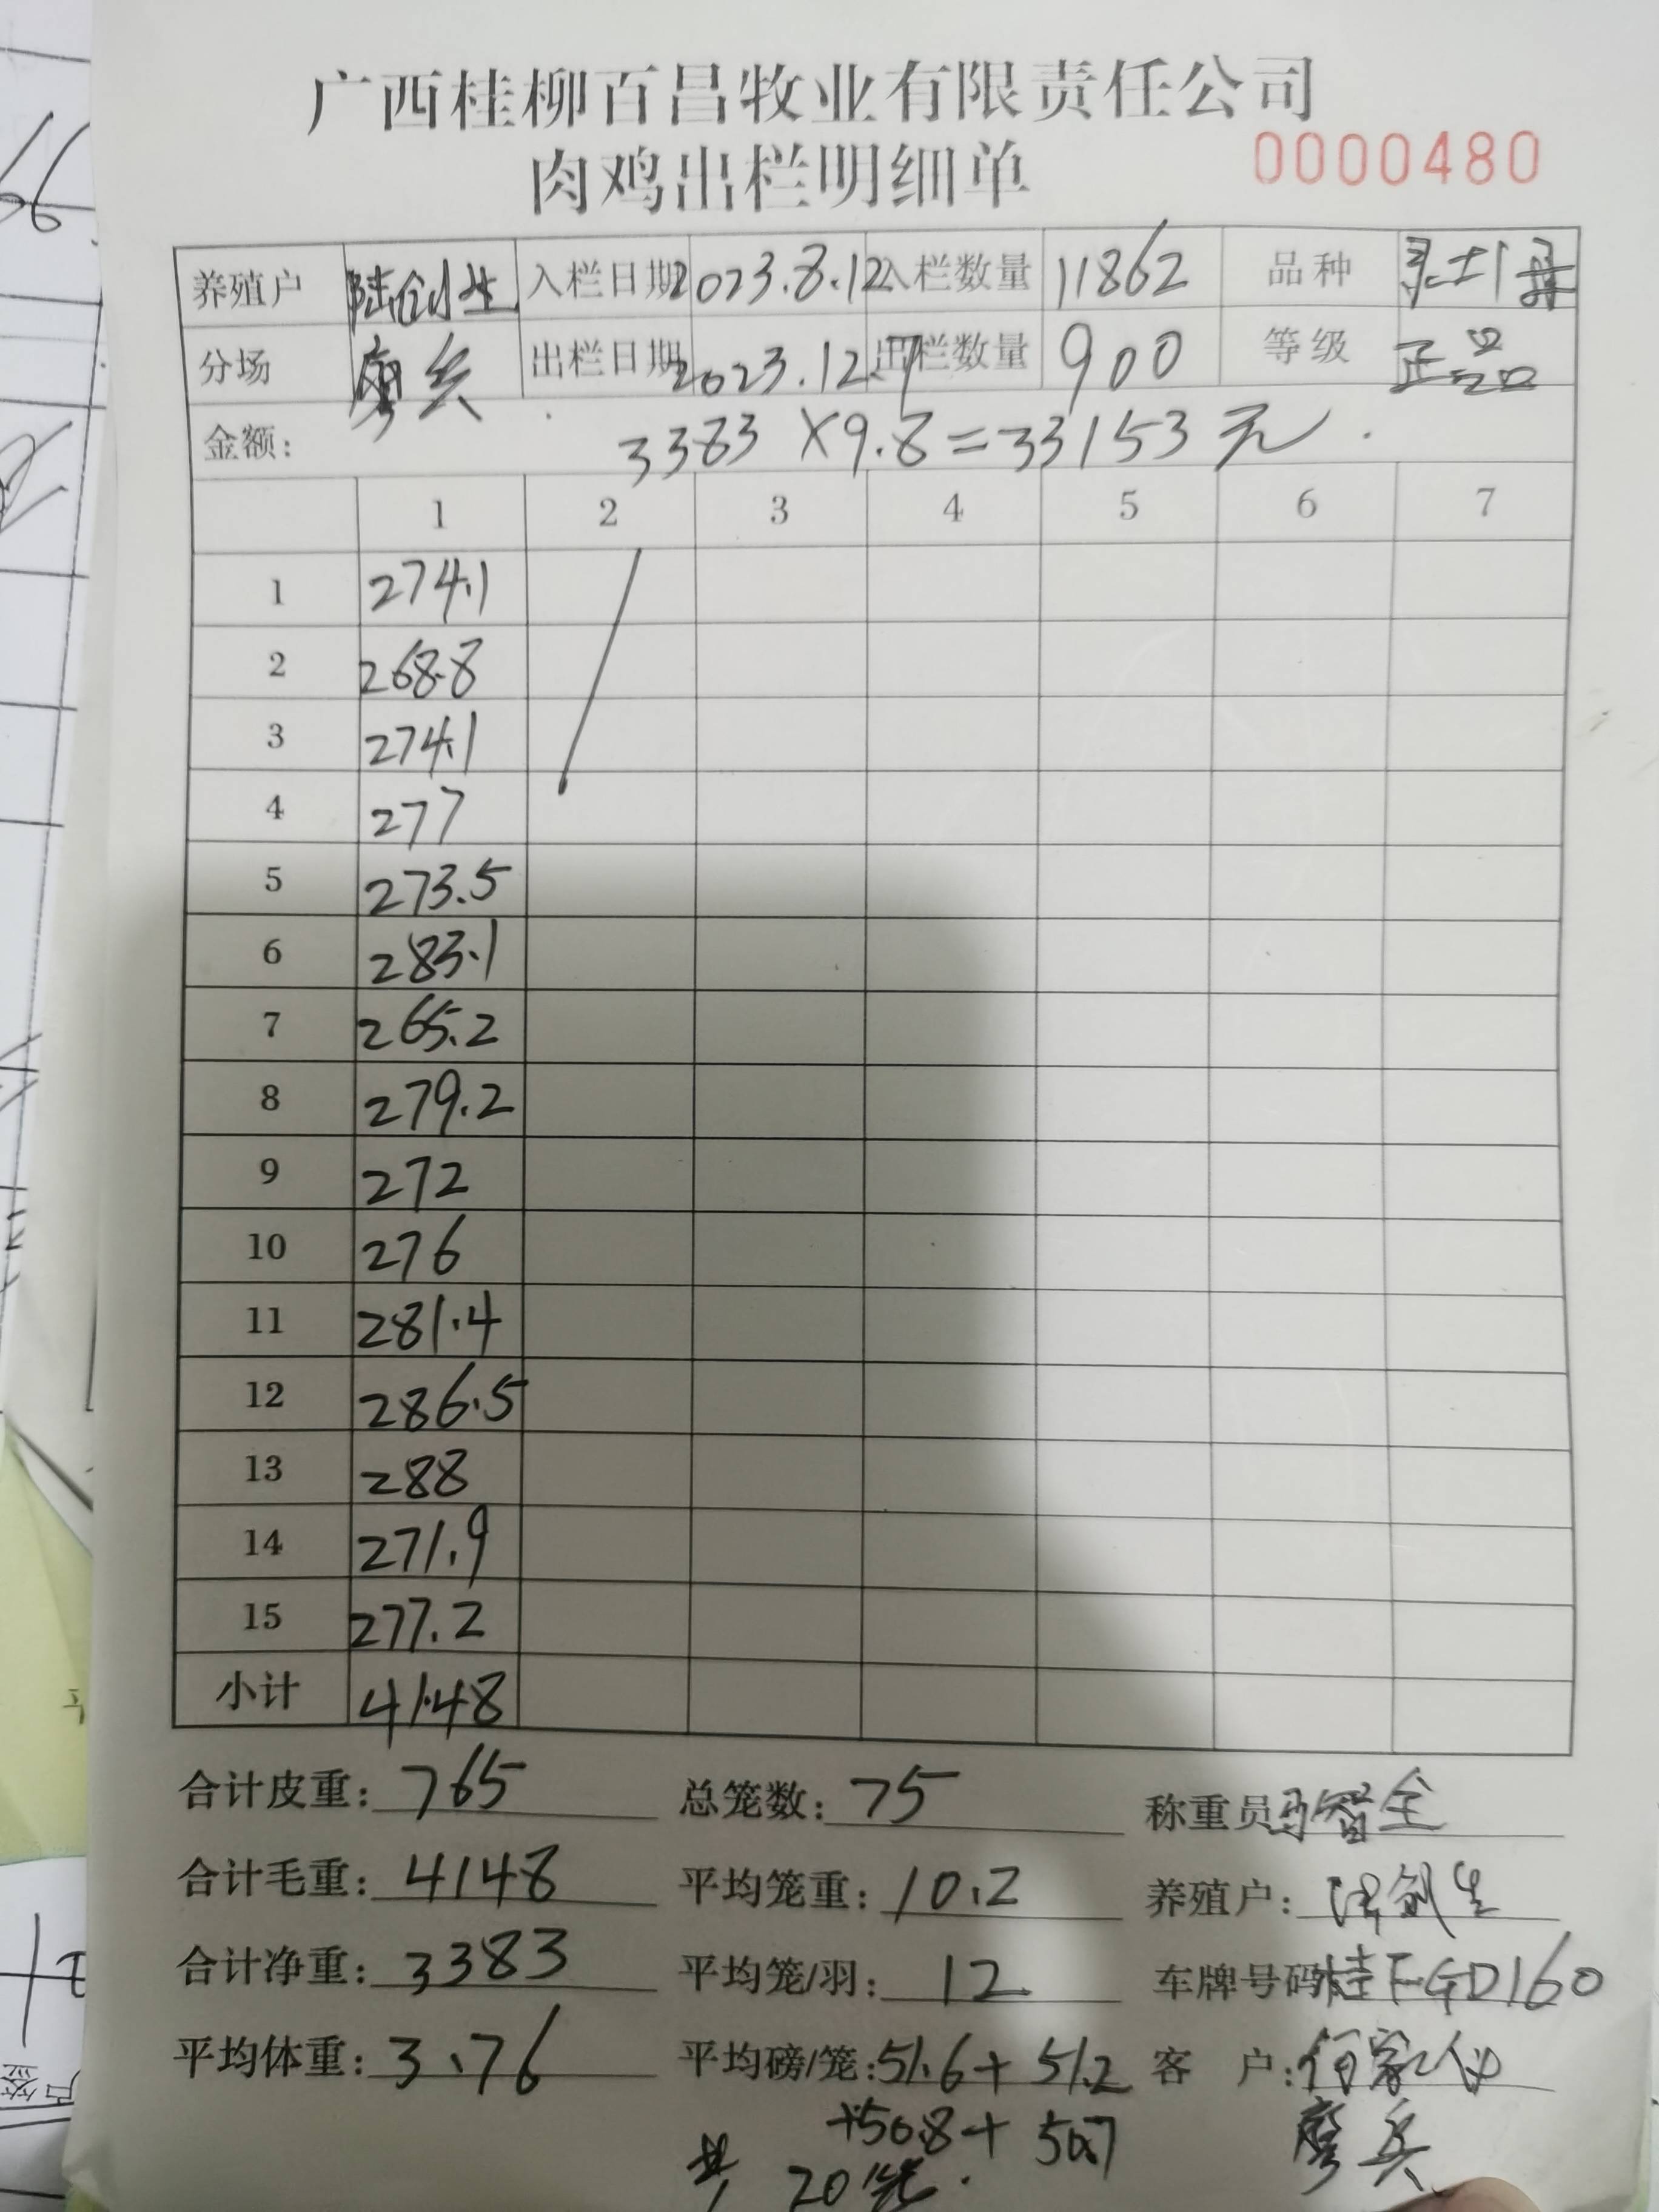 广西桂柳百昌牧业有限责任公司
肉鸡出栏明细单 0000480
养殖户 陆创生 入栏日期 2023.8.12 入栏数量 11862 品种
分场 廖兵 出栏日期 2023.12.7 出栏数量 900 等级 正品
金额: 3383×9.8=33153元.
1 2 3 4 5 6 7
1 274.1
2 268.8
3 274.1
4 277
5 273.5
6 283.1
7 265.2
8 279.2
9 272
10 276
11 281.4
12 286.5
13 288
14 271.9
15 277.2
小计 4148
合计皮重: 765 总笼数: 75 称重员 智全
合计毛重: 4148 平均笼重: 10.2 养殖户: 陆创生
合计净重: 3383 平均笼/羽: 12 车牌号码 桂FGD160
平均体重: 3.76 平均磅/笼: 51.6+51.2 客 户: 何家
+50.8+50.7 廖兵
共 20笼.